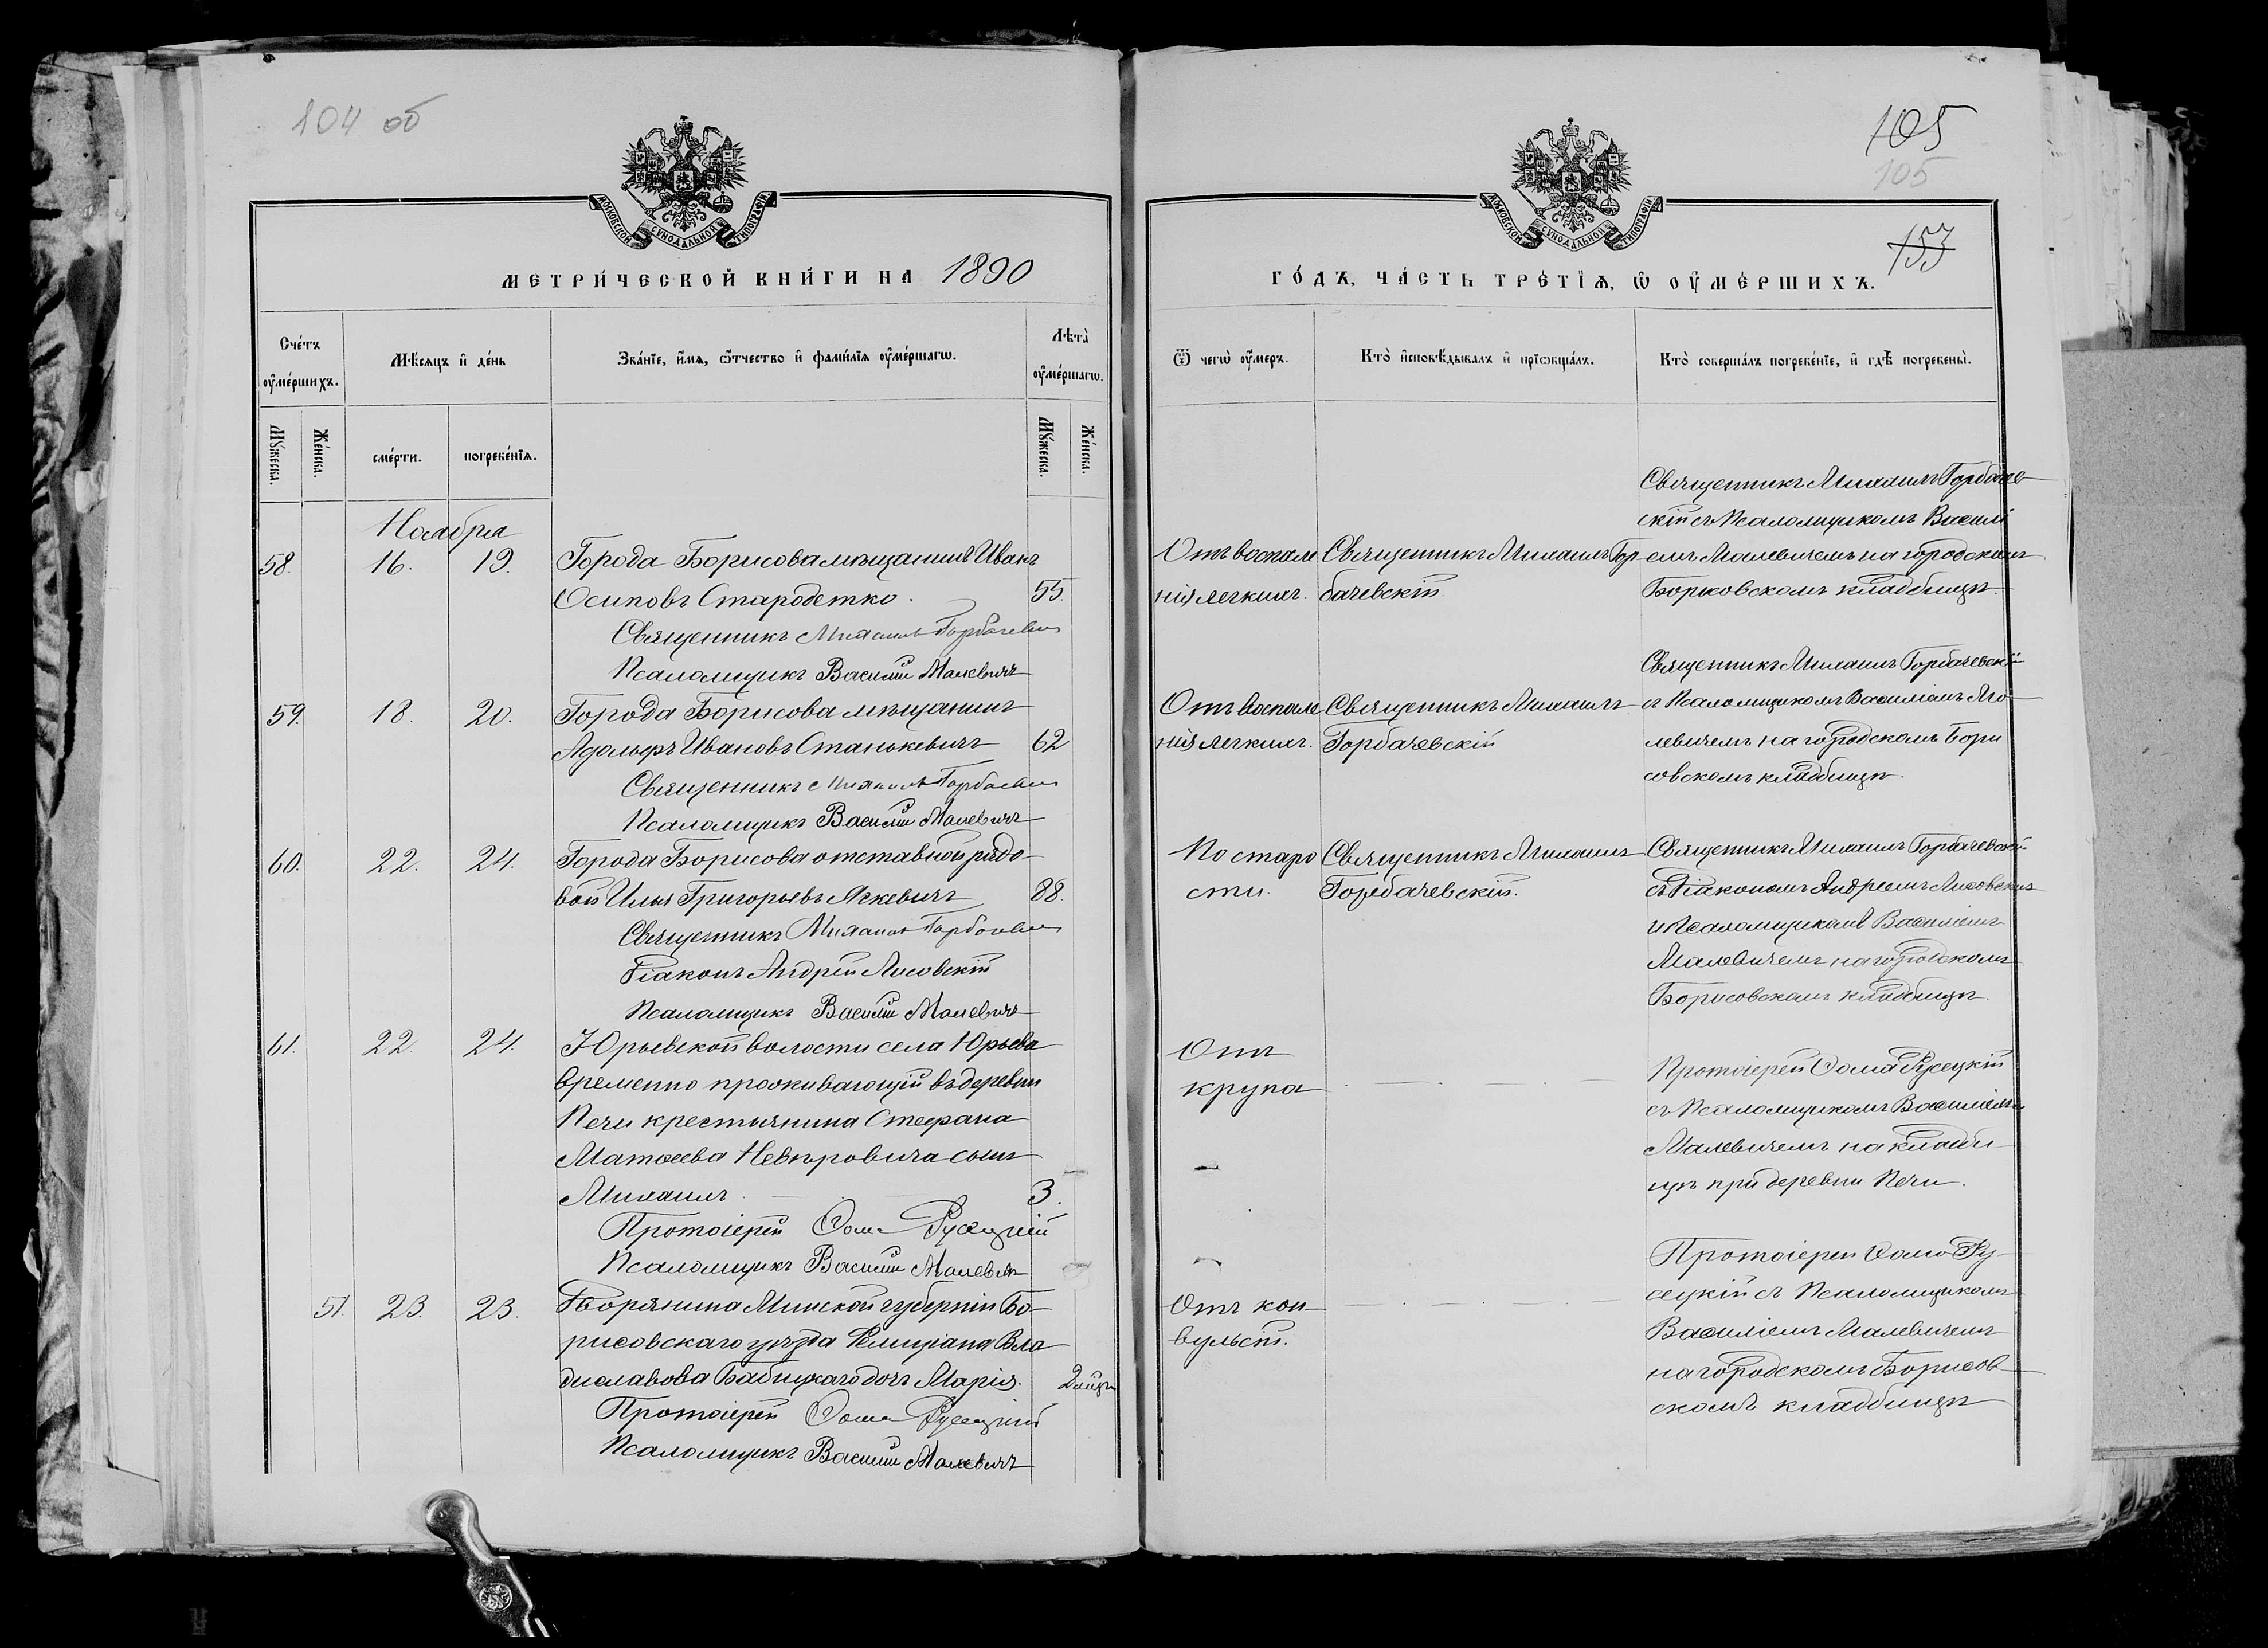 104 об
МОСКОВСКОЙ СУНОДАЛЬНОЙ ТИПОГРАФІИ
МЕТРИ́ЧЕСКОЙ КНИ́ГИ НА 1890
Сче́тъ ᲂу҆ме́ршихъ.
Мѣ́сяцъ и҆ де́нь
Зва́нїе, и҆́мѧ, ѻ҆́тчество и҆ фами́лїѧ ᲂу҆ме́ршагѡ.
Лѣта̀ ᲂу҆ме́ршагѡ.
Му́жеска.
Же́нска.
сме́рти.
погребе́нїѧ.
Му́жеска.
Же́нска.
Ноября
58. 16. 19. Города Борисова мѣщанинъ Иванъ
Осиповъ Стародетко. 55.
Священникъ Михаилъ Горбачевскій
Псаломщикъ Василій Малевичъ
59. 18. 20. Города Борисова мѣщанинъ
Адольфъ Ивановъ Станькевичъ 62
Священникъ Михаилъ Горбачевскій
Псаломщикъ Василій Малевичъ
60. 22. 24. Города Борисова отставной рядо-
вой Илья Григорьевъ Яскевичъ 88.
Священникъ Михаилъ Горбачевскій
Діаконъ Андрей Лисовскій
Псаломщикъ Василій Малевичъ
61. 22. 24. Юрьевской волости села Юрьева
временно проживающій въ деревни
Печи крестьянина Стефана
Матѳеева Невѣровича сынъ
Михаилъ. 3.
Протоіерей Ѳома Русецкій
Псаломщикъ Василій Малевичъ
51. 23. 23. Дворянина Минской губерніи Бо-
рисовскаго уѣзда Фелиціана Вла
диславова Бабицкаго дочь Марія. 2 мѣц
Протоіерей Ѳома Русецкій
Псаломщикъ Василій Малевичъ
105
105
153
МОСКОВСКОЙ СУНОДАЛЬНОЙ ТИПОГРАФІИ
ГО́ДЪ, ЧА́СТЬ ТРЕ́ТЇѦ, Ѡ ОУ҆МЕ́РШИХЪ.
Ѿ чегѡ̀ ᲂу҆́меръ.
Кто̀ и҆сповѣ́дывалъ и҆ прїѡбща́лъ.
Кто̀ соверша́лъ погребе́нїе, и҆ гдѣ̀ погребены̀.
Отъ воспале
нія легкихъ.
Священникъ Михаилъ Гор
бачевскій
Священникъ Михаилъ Горбачев
скій съ Псаломщикомъ Василі
емъ Малевичемъ на городскомъ
Борисовскомъ кладбищѣ.
Отъ воспале
нія легкихъ.
Священникъ Михаилъ
Горбачевскій
Священникъ Михаилъ Горбачевскій
съ Псаломщикомъ Василіемъ Ма-
левичемъ на городскомъ Бори
совскомъ кладбищѣ.
По старо
сти.
Священникъ Михаилъ
Горбачевскій.
Священникъ Михаилъ Горбачевскій
съ Діакономъ Андреемъ Лисовскимъ
и Псаломщикомъ Василіемъ
Малевичемъ на городскомъ
Борисовскомъ кладбищѣ.
Отъ
крупа
Протоіерей Ѳома Русецкій
съ Псаломщикомъ Василіемъ
Малевичемъ на кладби
щѣ при деревни Печи.
Отъ кон-
вульсій.
Протоіерей Ѳома Ру-
сецкій съ Псаломщикомъ
Василіемъ Малевичемъ
на городскомъ Борисов
скомъ кладбищѣ